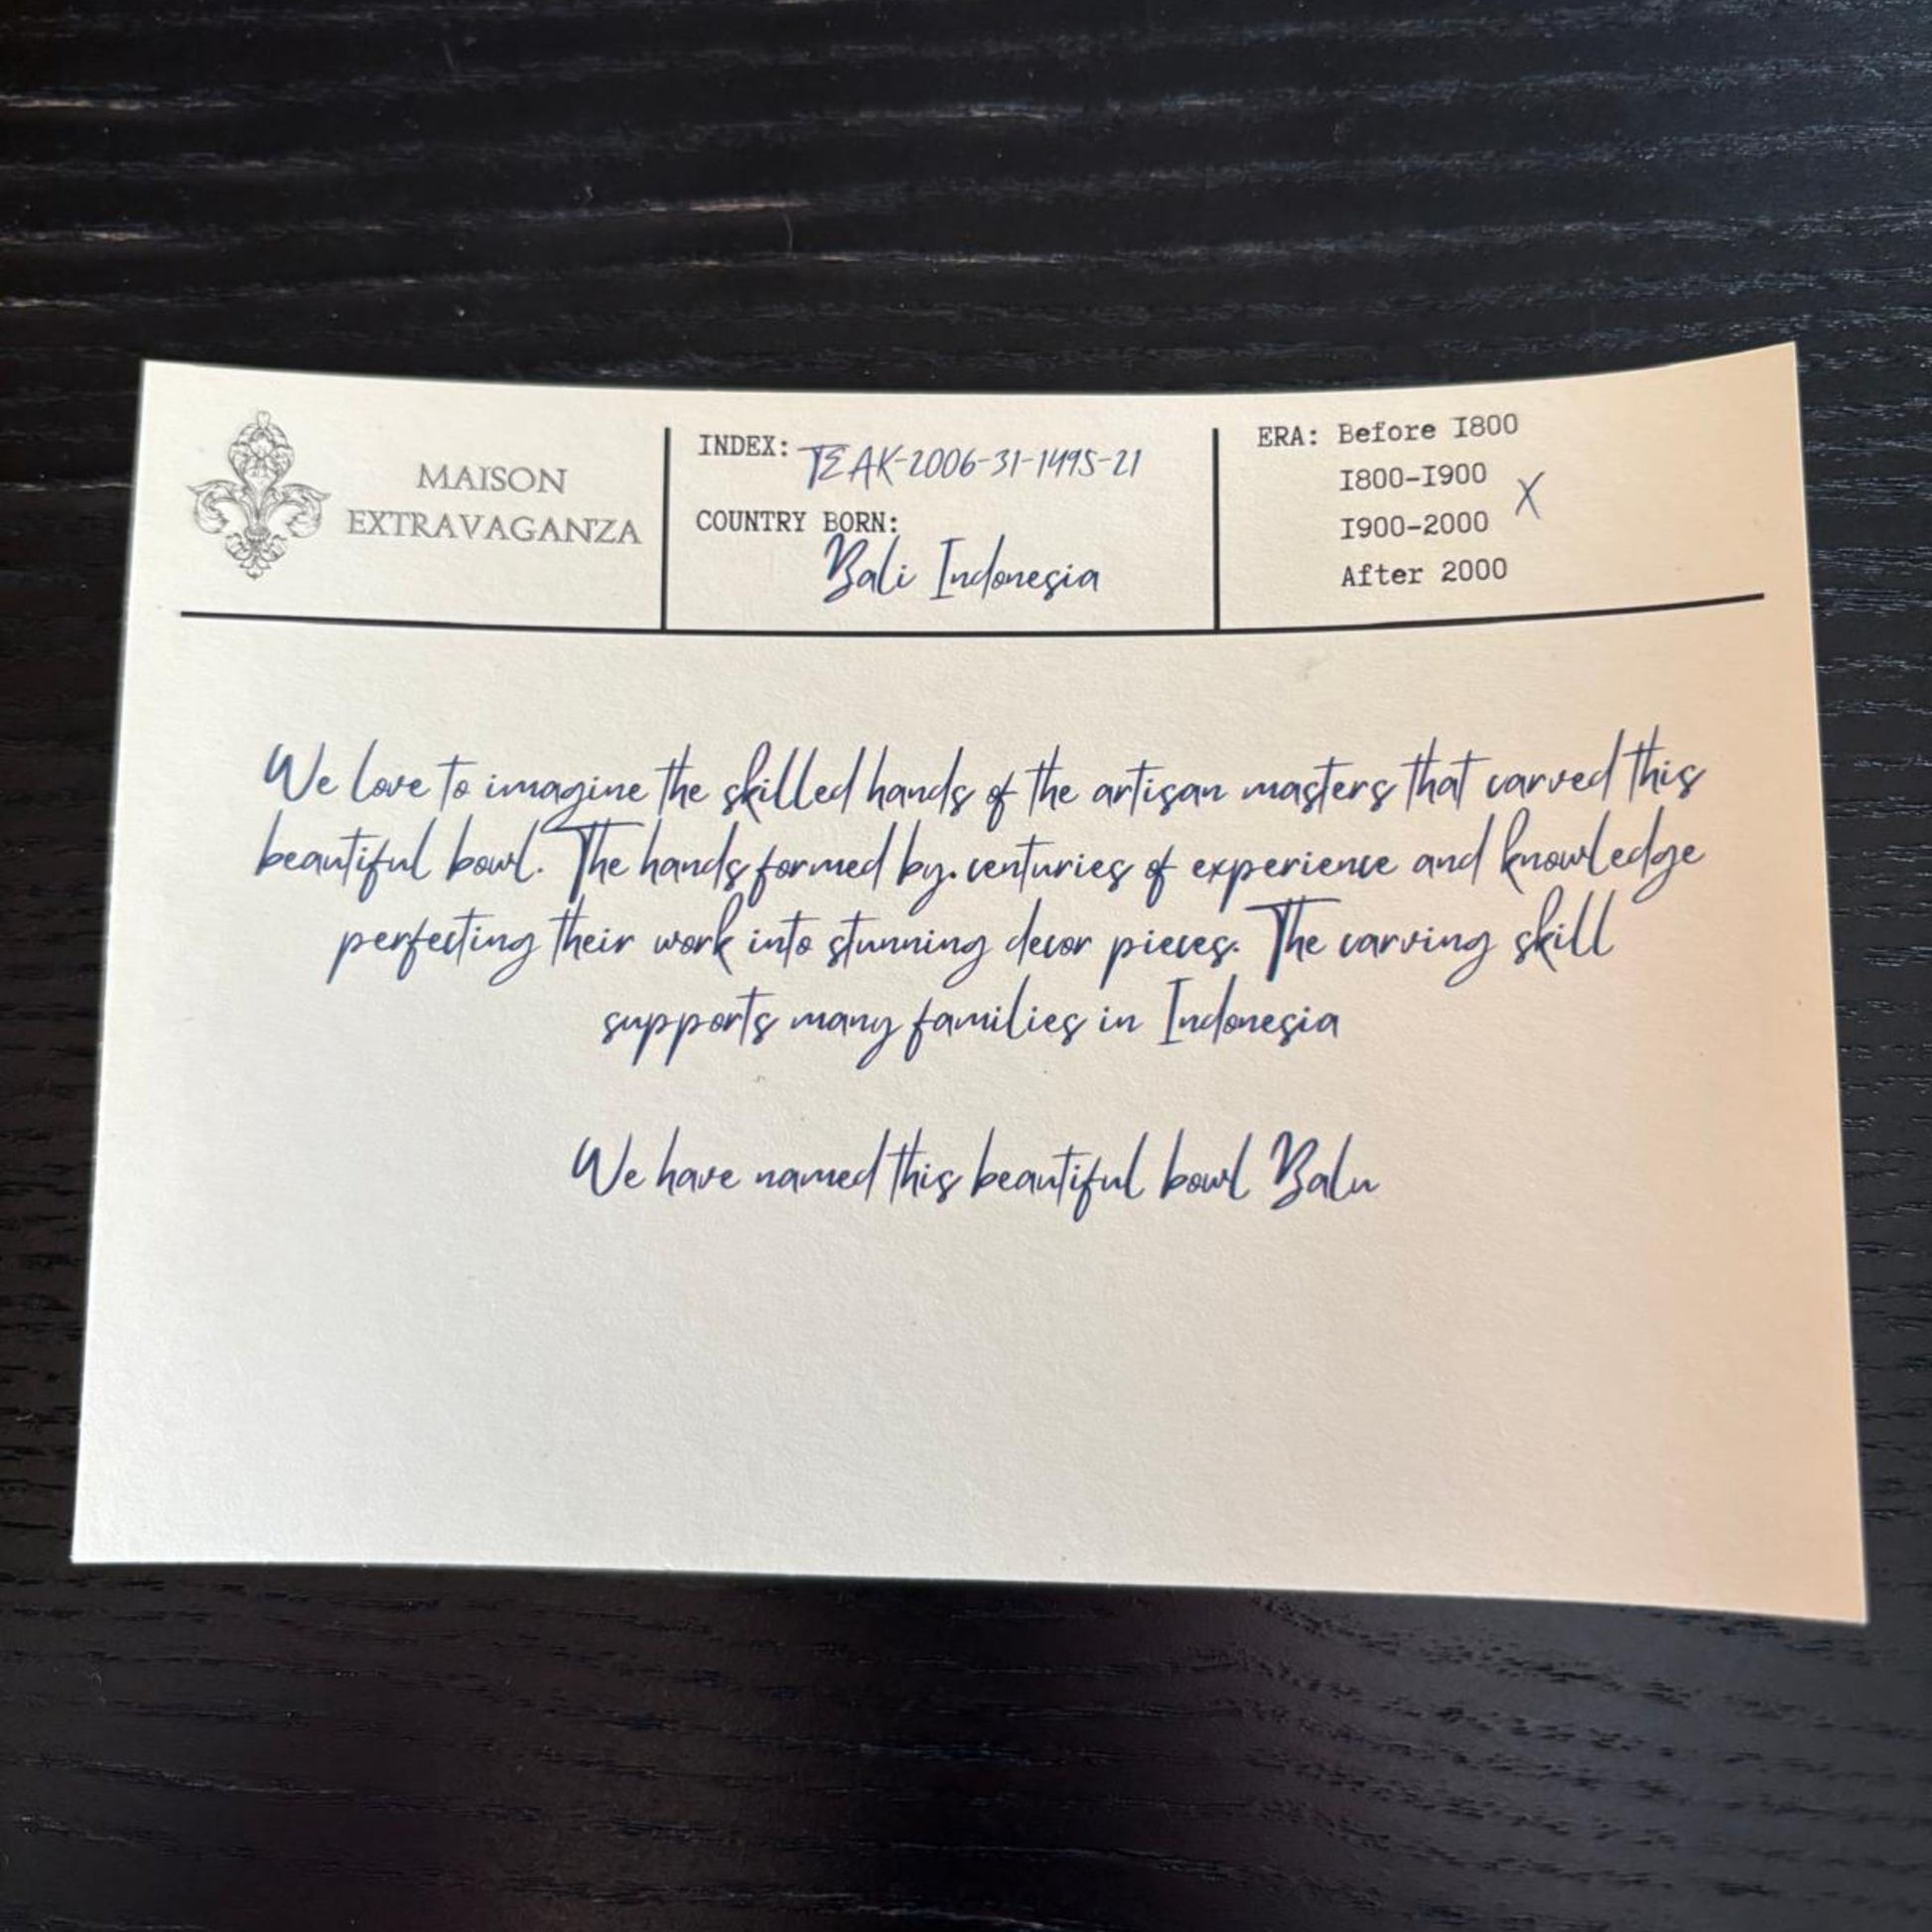 MAISON
EXTRAVAGANZA
INDEX: TEAK-2006-31-1495-21
COUNTRY BORN:
Bali Indonesia
ERA: Before I800
I800-I900
X
I900-2000
After 2000
We love to imagine the skilled hands of the artisan masters that carved this
beautiful bowl. The hands formed by. centuries of experience and knowledge
perfecting their work into stunning decor pieces. The carving skill
supports many families in Indonesia
We have named this beautiful bowl Balu